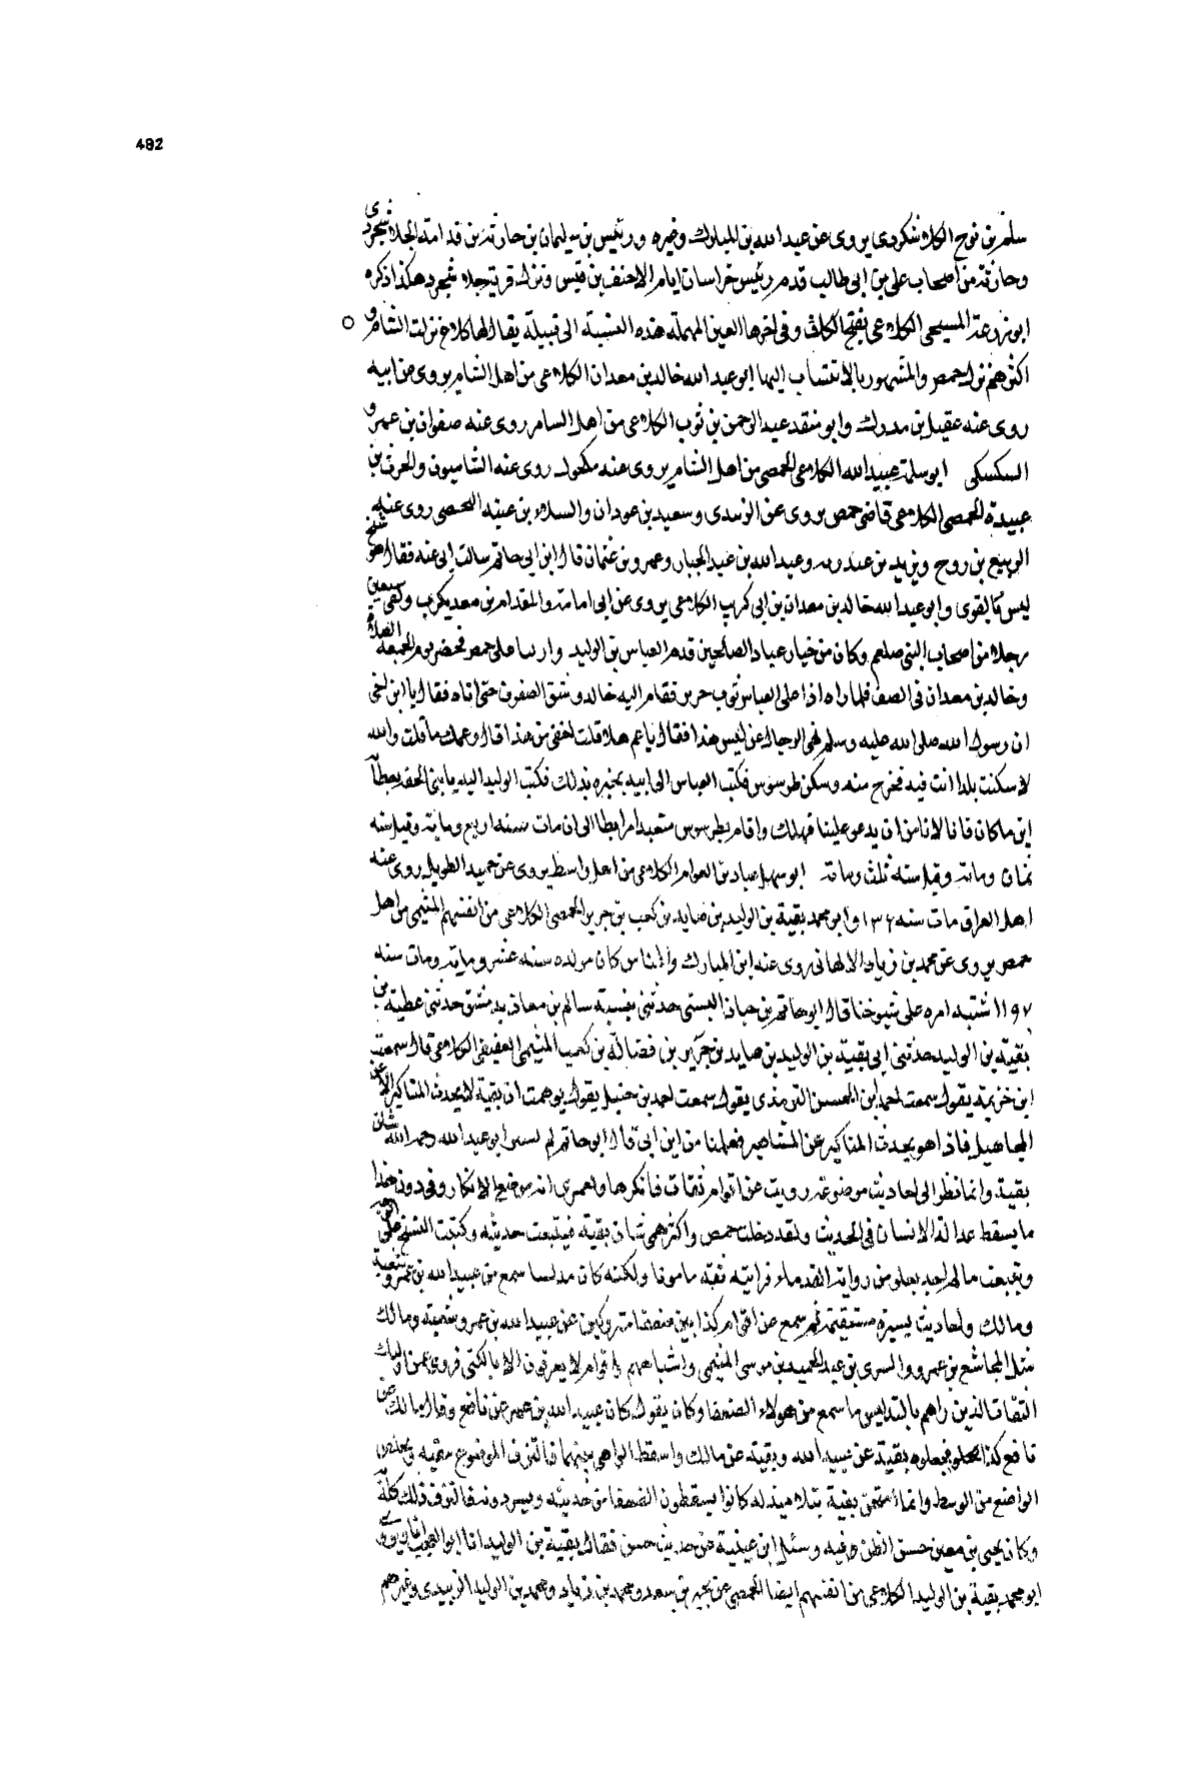 482
سلم بن نوح الكلاشكردى يروى عن عبد الله بن المبارك وغيره ورئيس بن سليمان بن حارثة بن قدامة الجلاشجردى
وحارثة من اصحاب على بن ابى طالب قدم رئيس خراسان ايام الاحنف بن قيس ونزل قرية جلاشجرد هكذا ذكره
ابو زرعة المسيحى الكلاعى بفتح الكاف وفى اخرها العين المهملة هذه النسبة الى قبيلة يقال لها كلاع نزلت الشام و
اكثرهم نزل حمص والمشهور بالانتساب اليها ابو عبد الله خالد بن معدان الكلاعى من اهل الشام يروى عن ابيه
روى عنه عقيل بن مدرك وابو منقذ عبد الرحمن بن ثوب الكلاعى من اهل السام روى عنه صفوان بن عمرو
السكسكى ابو سلمة عبيد الله الكلاعى الحمصى من اهل الشام يروى عنه مكحول روى عنه الشاميون والحرث بن
عبيدة الحمصى الكلاعى قاضى حمص يروى عن الزبيدى وسعيد بن عودان والسلام بن عيينه الحمصى روى عنه
الربيع بن روح ويزيد بن عبد ربه وعبد الله بن عبد الجبار وعمرو بن عثمان قال ابن ابى حاتم سالت ابى عنه فقال هو شيخ
ليس بالقوى وابو عبد الله خالد بن معدان بن ابى كرب الكلاعى يروى عن ابى امامة والمقدام بن معديكرب ولقى سبعين
رجلا من اصحاب النبى صلعم وكان من خيار عباد الصالحين قدم العباس بن الوليد واليا على حمص فحضر يوم الجمعة الصلاة
وخالد بن معدان فى الصف فلما راه اذا على العباس ثوب حرير فقام اليه خالد وشق الصفوف حتى اتاه فقال يا ابن اخى
ان رسول الله صلى الله عليه وسلم نهى الرجال عن لبس هذا فقال يا عم هلا قلت اخفى من هذا قال وعمك ما قلت والله
لا سكنت بلدا انت فيه فخرج منه وسكن طرسوس فكتب العباس الى ابيه يخبره بذلك فكتب الوليد اليه يا بنى الحقه بعطآ
اين ما كان فانا لا نامن ان يدعو علينا فنهلك واقام بطرسوس متعبدا مرابطا الى ان مات سنه اربع ومايه وقيل سنه
ثمان ومائة وقيل سنه ثلث ومائة ابو سهل عباد بن العوام الكلاعى من اهل واسط يروى عن حميد الطويل روى عنه
اهل العراق مات سنه ١٣٦ وابو محمد بقية بن الوليد بن صايد بن كعب بن جرير الحمصى الكلاعى من انفسهم الميتمى من اهل
حمص يروى عن محمد بن زياد الالهانى روى عنه ابن المبارك والناس كان مولده سنه عشر ومايه ومات سنه
١٩٧ اشتبه امره على شيوخنا قال ابو حاتم بن حبان البستى حدثنى بنسبه سالم بن معاذ بدمشق حدثنى عطية بن
بقية بن الوليد حدثنى ابى بقية بن الوليد بن صايد بن جرير بن فضالة بن كعب الميتمى الكلاعى قال سمعت
ابن خزيمة يقول سمعت احمد بن الحسن الترمذى يقول سمعت احمد بن حنبل يقول توهمت ان بقية لا يحدث المناكير الا عن
المجاهيل فاذا هو يحدث المناكير عن المشاهير فعلمنا من اين اتى قال ابو حاتم لم يسبر ابو عبد الله رحمه الله شان
بقية وانما نظر الى احاديث موضوعة رويت عن اقوام ثقات فانكرها ولعمرى انه موضع الانكار وفى دون هذا
ما يسقط عدالة الانسان فى الحديث ولقد دخلت حمص واكثر همى شان بقية فتتبعت حديثه وكتبت النسخ على الوجه
وتتبعت ما لم اجد بعلو من رواية القدماء فرايته ثقة مامونا ولكنه كان مدلسا سمع من عبيد الله بن عمر وشعبة
ومالك احاديث يسيرة مستقيمة ثم سمع عن اقوام كذابين ضعفا متروكين عن عبيد الله بن عمرو شعبة ومالك
مثل المجاشع بن عمرو والسرى بن عبد الحميد بن موسى الميتمى واشباههم واقوام لا يعرفون الا بالكنى فروى عن اوليك
الثقات الذين راهم بالتدليس ما سمع من هولاء الضعفا وكان يقول كان عبيد الله بن عمر عن نافع وقال مالك عن
نافع كذا فجعلوه بقية عن عبيد الله وبقية عن مالك واسقط الواهى بينهما فالتزق الموضوع ببقية وتخلص
الواضع من الوسط وانما امتحن بقية بتلاميذ له كانوا يسقطون الضعفا من حديثه ويسوونه فالتزق ذلك كله
وكان يحيى بن معين حسن الظن فيه وسئل ابن عيينة عن حديث حسن فقال بقية بن الوليد انا ابو العجب انا ويروى
ابو محمد بقية بن الوليد الكلاعى من انفسهم ايضا الحمصى عن بحير بن سعد ومحمد بن زياد ومحمد بن الوليد الزبيدى وغيرهم